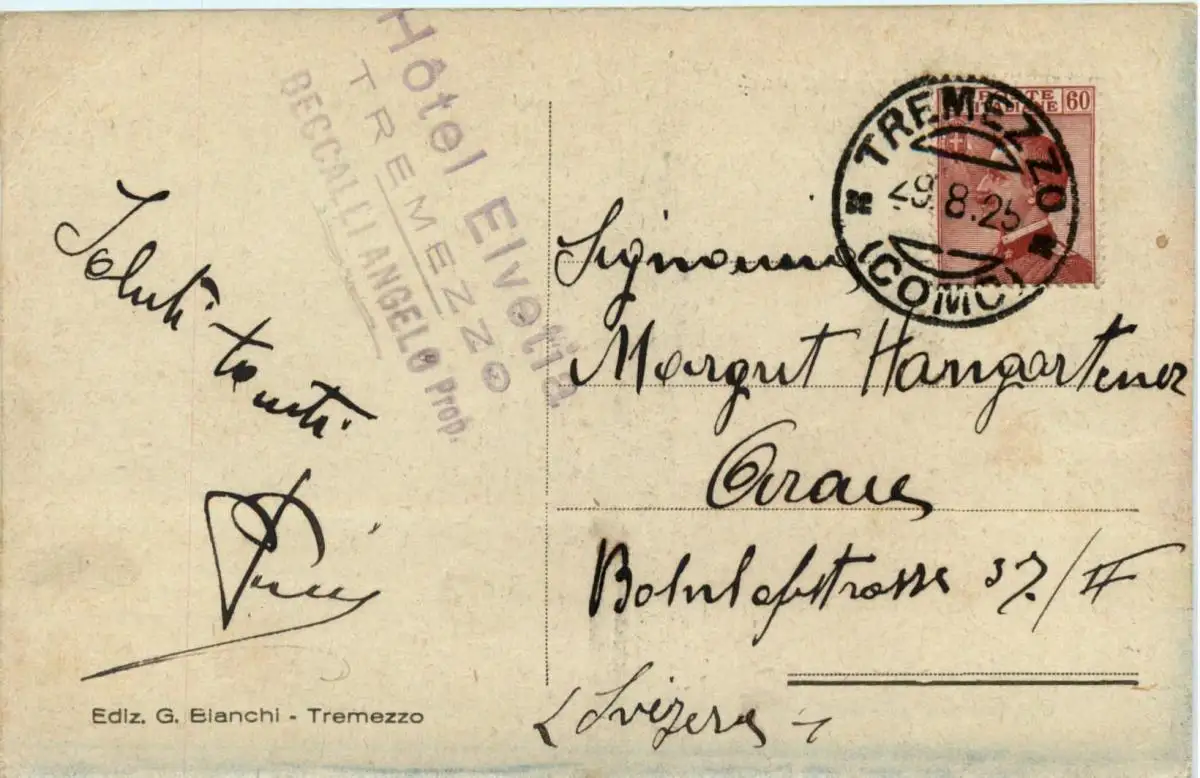 Hôtel Elvetia
TREMEZZO
BECCALLI ANGELO Prop.
POSTE ITALIANE 60
TREMEZZO
29.8.25
(COMO)
Saluti
tanti
Signorina
Margrit Hangartner
Arau
37/II
(Svizzera)
Ediz. G. Bianchi - Tremezzo